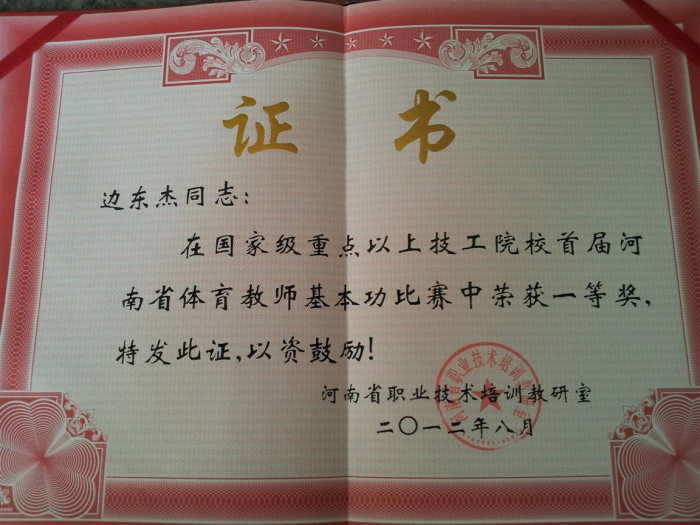 证书
边东杰同志:
在国家级重点以上技工院校首届河
南省体育教师基本功比赛中荣获一等奖,
特发此证,以资鼓励!
河南省职业技术培训教研室
二〇一二年八月
河南省职业技术培训教研室